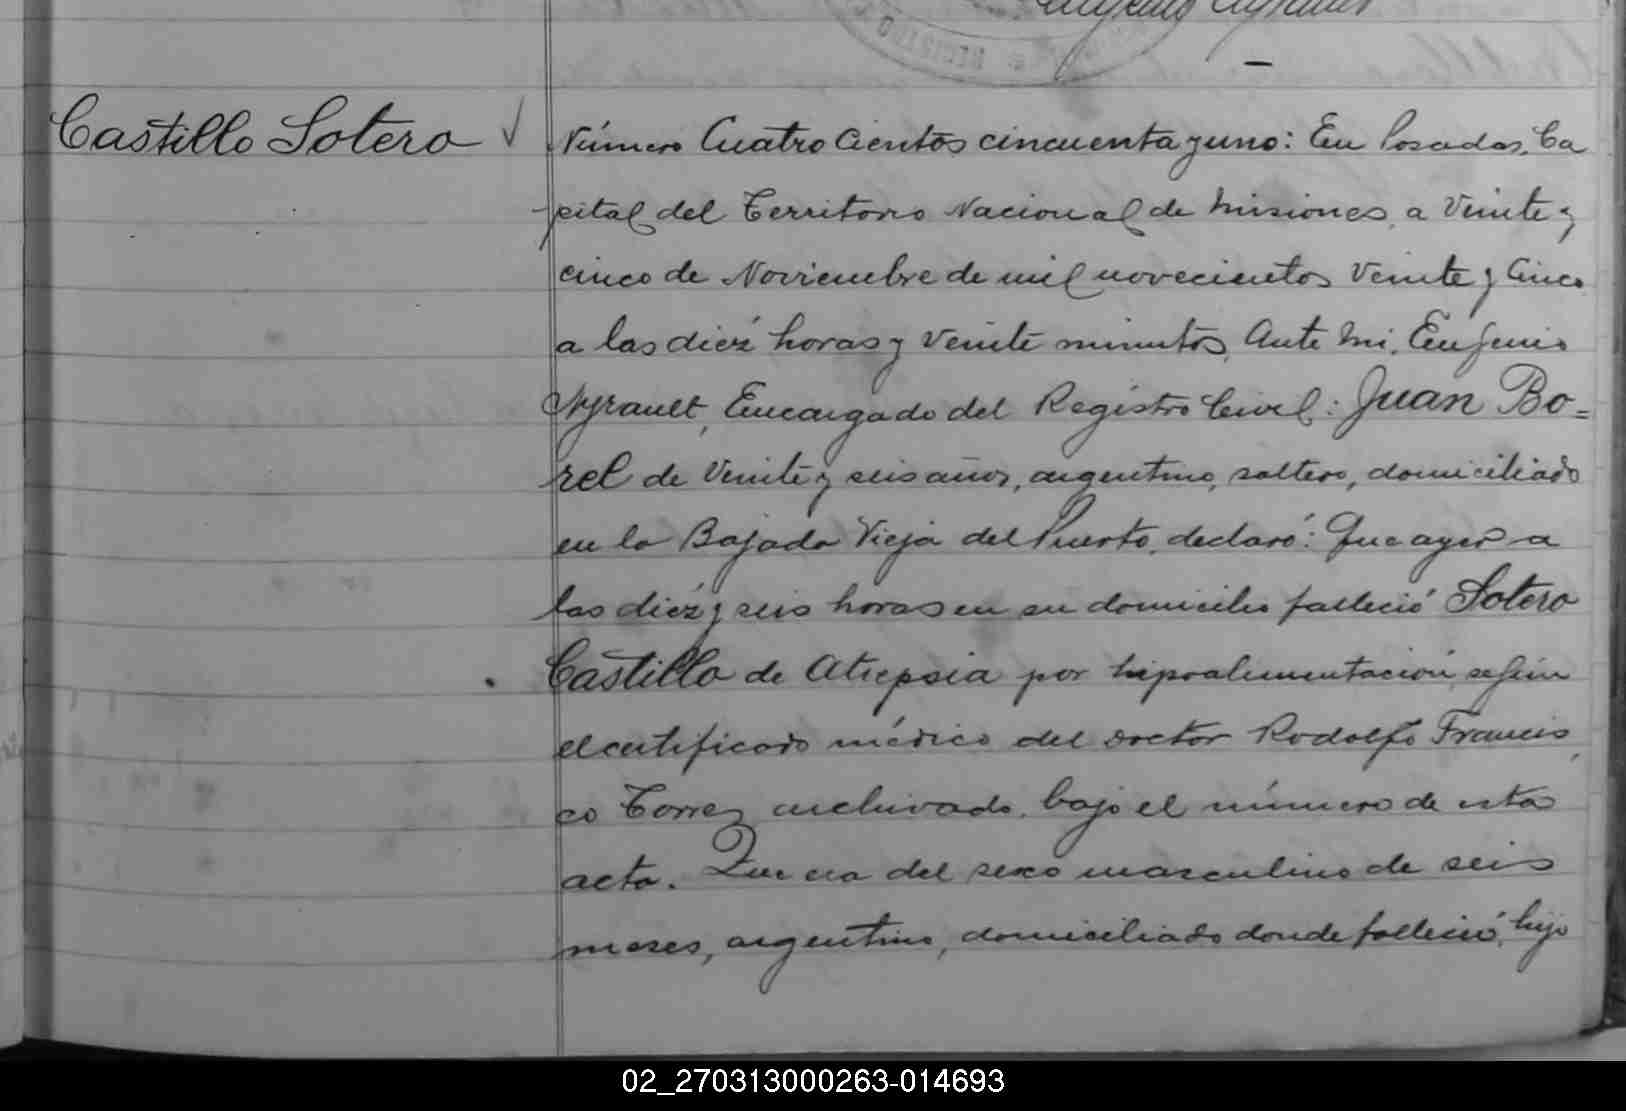 Eugenio Ayrault
REGISTRO
Castillo Sotero √
Número Cuatro Cientos cincuenta y uno: En Posadas, Ca
pital del Territorio Nacional de Misiones, a Veinte y
cinco de Noviembre de mil novecientos Veinte y Cinco
a las diéz horas y Veinte minutos, Ante Mi, Eugenio
Ayrault, Encargado del Registro Civil: Juan Bo=
rel de Veinte y seis años, argentino, soltero, domiciliado
en la Bajada Vieja del Puerto, declaró: Que ayer a
las diéz y seis horas en su domicilio falleció Sotero
Castillo de Atrepsia por hipoalimentación, según
el certificado médico del doctor Rodolfo Francis
co Torres archivado bajo el número de esta
acta. Que era del sexo masculino de seis
meses, argentino, domiciliado donde falleció, hijo
02_270313000263-014693